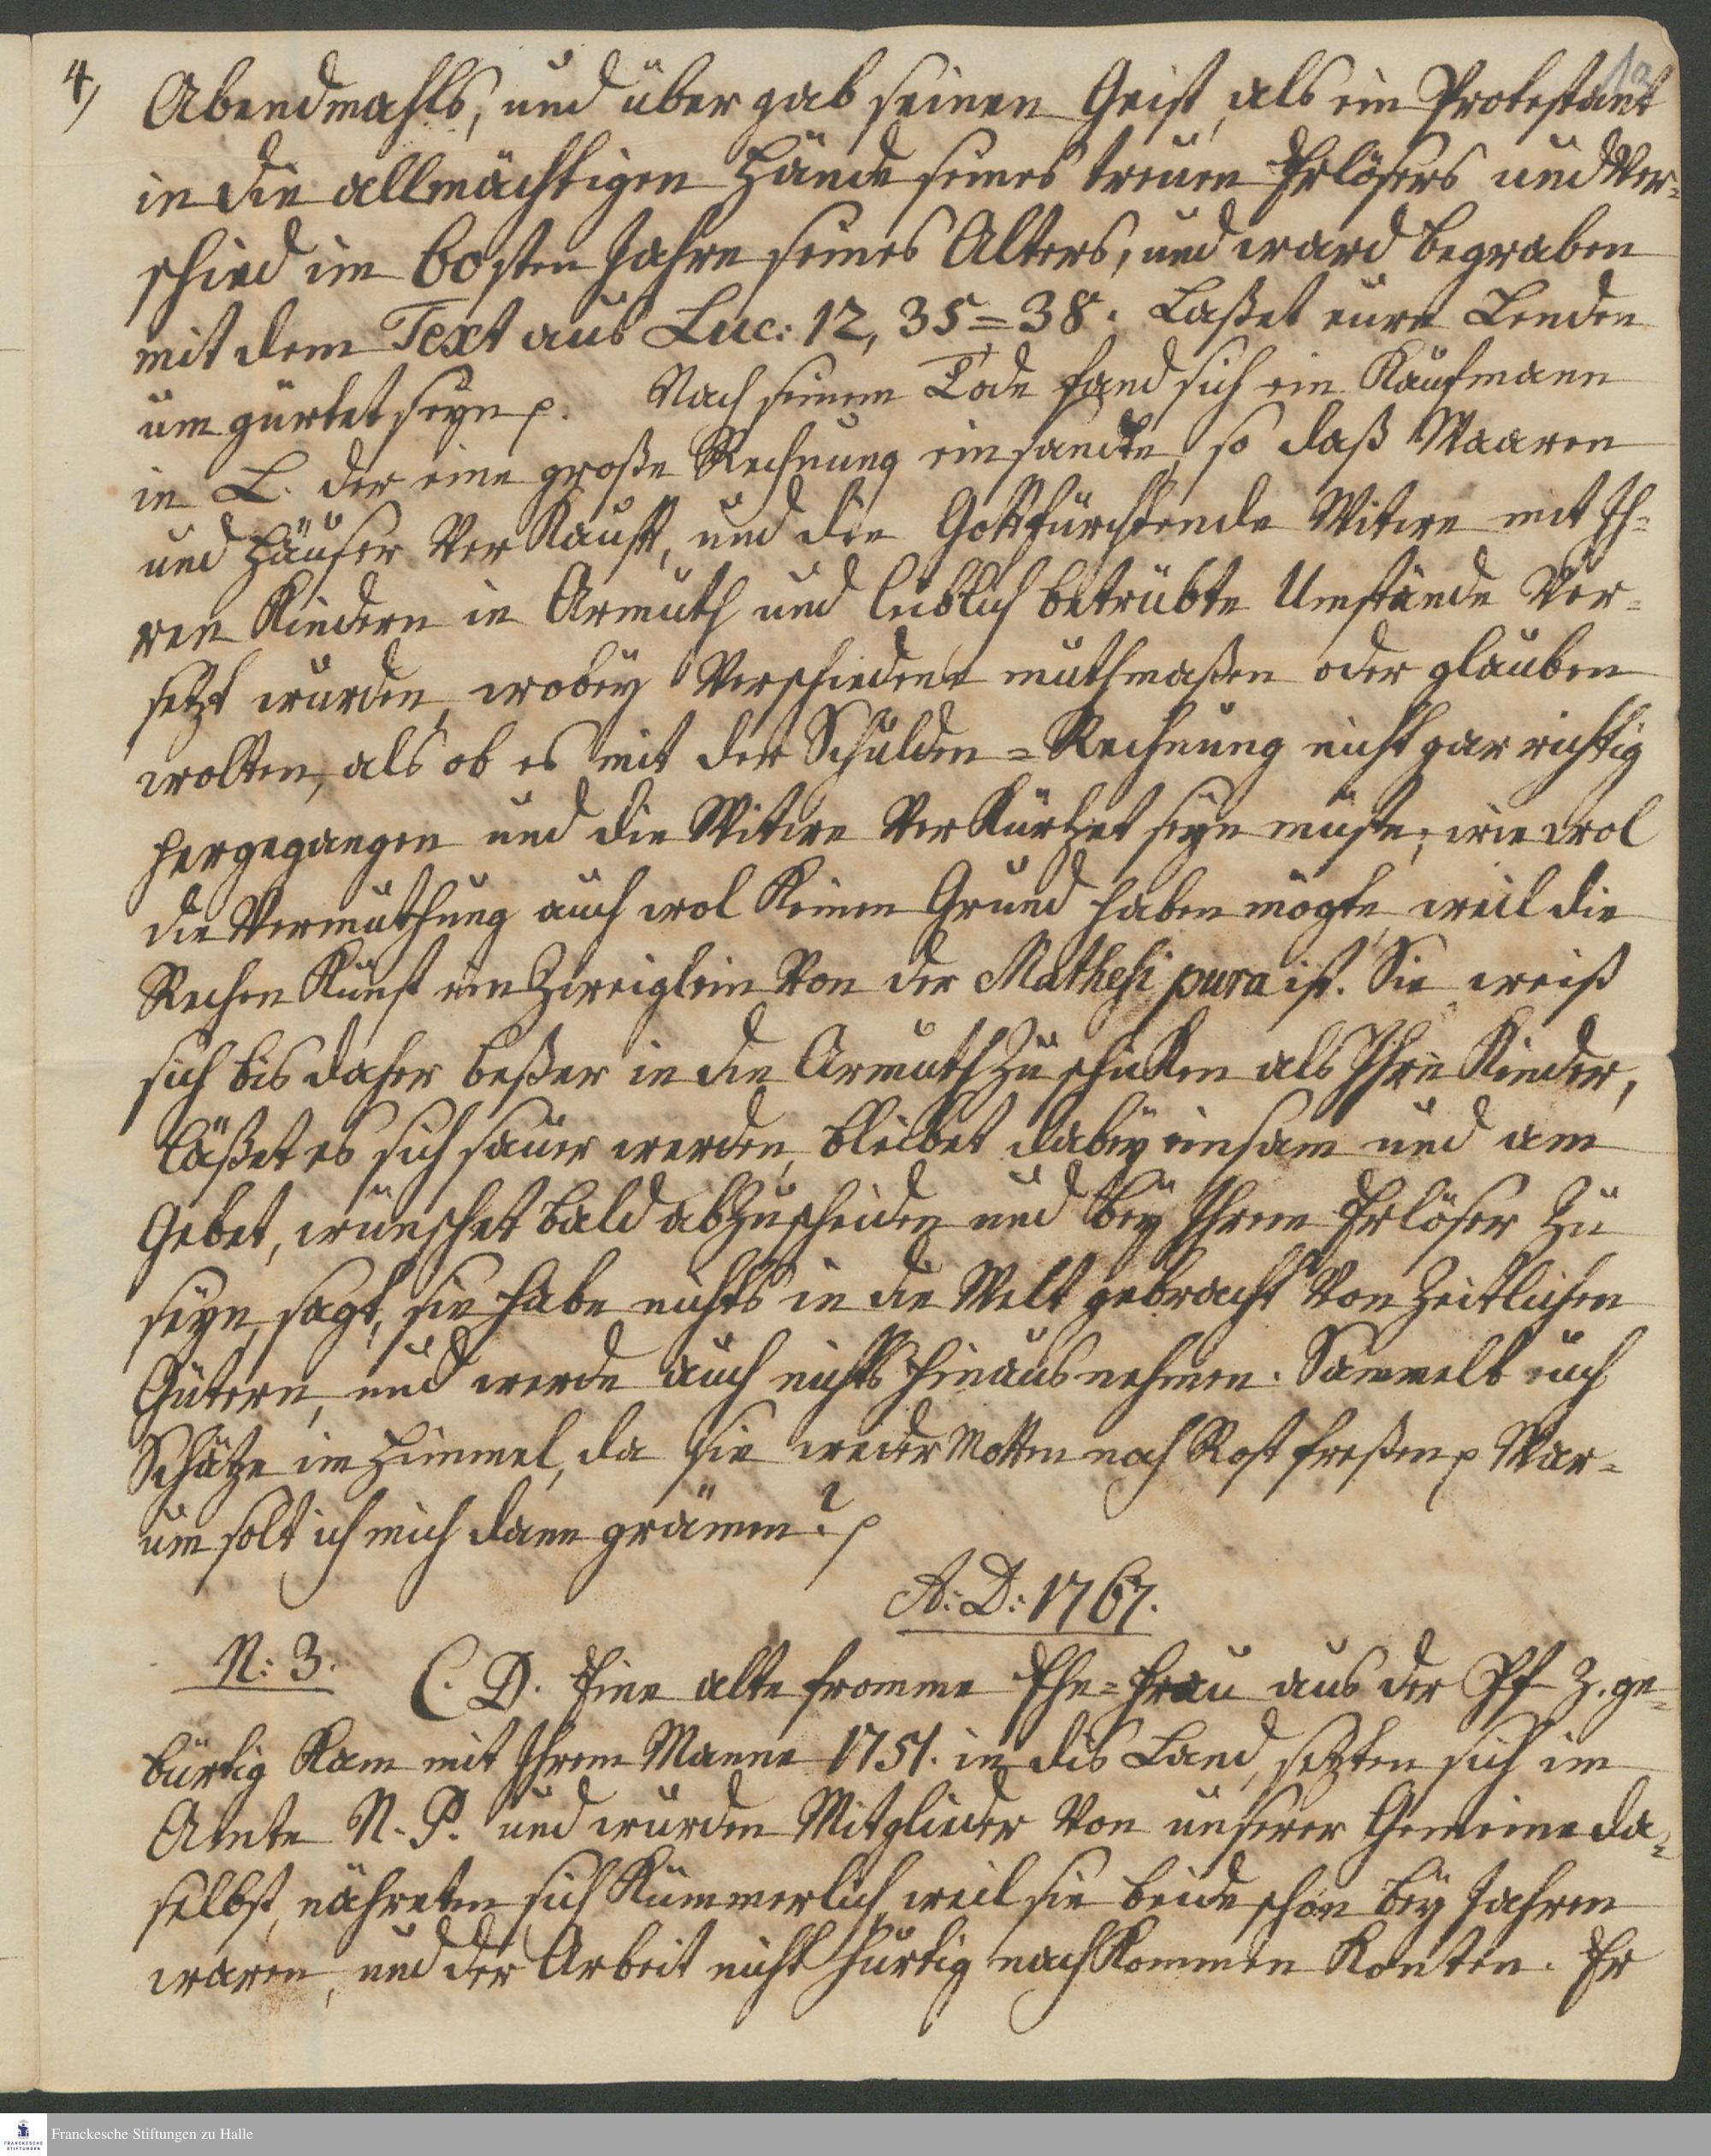 12
4) Abendmahls, und über gab seinen Geist, als ein Protestant
in die allmächtigen Hände seines treuen Erlösers und Ver=
schied im 60sten Jahre seines Alters, und ward begraben
mit dem Text aus Luc: 12, 35=38. Laßet eure Lenden
um gürtet seyn p. Nach seinem Tode fand sich ein Kaufmann
in L. der eine große Rechnung einsandte, so daß Waaren
und Häuser Verkauft, und die Gottsfürchtende Witwe mit Ih=
ren Kindern in Armuth und leiblich betrübte Umstände Ver=
setzt wurden, wobey Verschiedene muthmaßen oder glauben
wolten, als ob es mit der Schulden=Rechnung nicht gar richtig
hergegangen und die Witwe Verkürtzet seyn müste; wie wol
die Vermuthung auch wol keinen Grund haben mögte, weil die
Rechen Kunst ein Zweiglein Von der Mathesi pura ist. Sie weiß
sich bis daher beßer in die Armuth zu schicken als Ihre Kinder,
läßet es sich sauer werden, bleibet dabey einsam und am
Gebet, wünschet bald abzuscheiden und bey Ihrem Erlöser zu
seyn, sagt, sie habe nichts in die Welt gebracht Von Zeitlichen
Gütern, und werde auch nichts hinaus nehmen. Sammelt euch
Schätze im Himmel, da sie weder Motten noch Rost freßen p War=
um solt ich mich dann grämen? p
A: D: 1767.
N: 3. C. D. Eine alte fromme Ehe=Frau aus der Pf Z. ge=
bürtig kam mit Ihrem Manne 1751. in dis Land, setzten sich im
Amte N. P. und wurden Mitglieder Von unserer Gemeine da=
selbst, nähreten sich kümmerlich, weil sie beide schon bey Jahren
waren, und der Arbeit nicht hurtig nachkommen konten. Er
Franckesche Stiftungen zu Halle
FRANCKESCHE
STIFTUNGEN